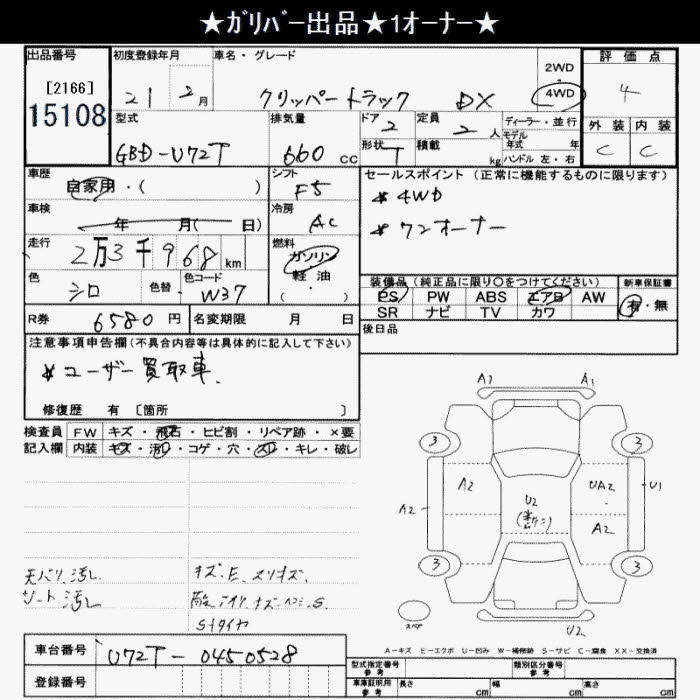 ★ｶﾞﾘﾊﾞｰ出品★1オーナー★
出品番号
[2166]
15108
初度登録年月
21 2月
車名・グレード
クリッパートラック DX
2WD
4WD
評価点
4
外装 内装
C C
型式
GBD-U72T
排気量
660 cc
ドア
2
形状
T
定員
2人
積載
kg
ディーラー・並行
モデル年式 年
ハンドル 左・右
車歴
自家用・( )
シフト
F5
車検
年 月( 日)
冷房
AC
走行
2万3千968km
燃料
ガソリン
軽油
( ・ )
色
シロ
色替
色コード
W37
R券
6580円
名変期限 月 日
セールスポイント(正常に機能するものに限ります)
* 4WD
* ワンオーナー
装備品(純正品に限り〇をつけてください)
新車保証書
PS PW ABS エアB AW
SR ナビ TV カワ
有・無
後日品
注意事項申告欄(不具合内容等は具体的に記入して下さい)
* ユーザー買取車.
修復歴 有 〔箇所 〕
検査員記入欄
FW キズ・飛石・ヒビ割・リペア跡・×要
内装 キズ・汚レ・コゲ・穴・スレ・キレ・破レ
シート汚レ
キズ.E.スリキズ.
Sタイヤ
A1 A1
3 3
A2 A2 U2 UA2 U1
A2
3 3
スペア
U2
A－キズ E－エクボ U－凹み W－補修跡 S－サビ C－腐食 XX－交換済
車台番号
U72T-0450528
登録番号
型式指定番号 参考
類別区分番号 参考
車庫証明用 参考
長さ cm 幅 cm 高さ cm